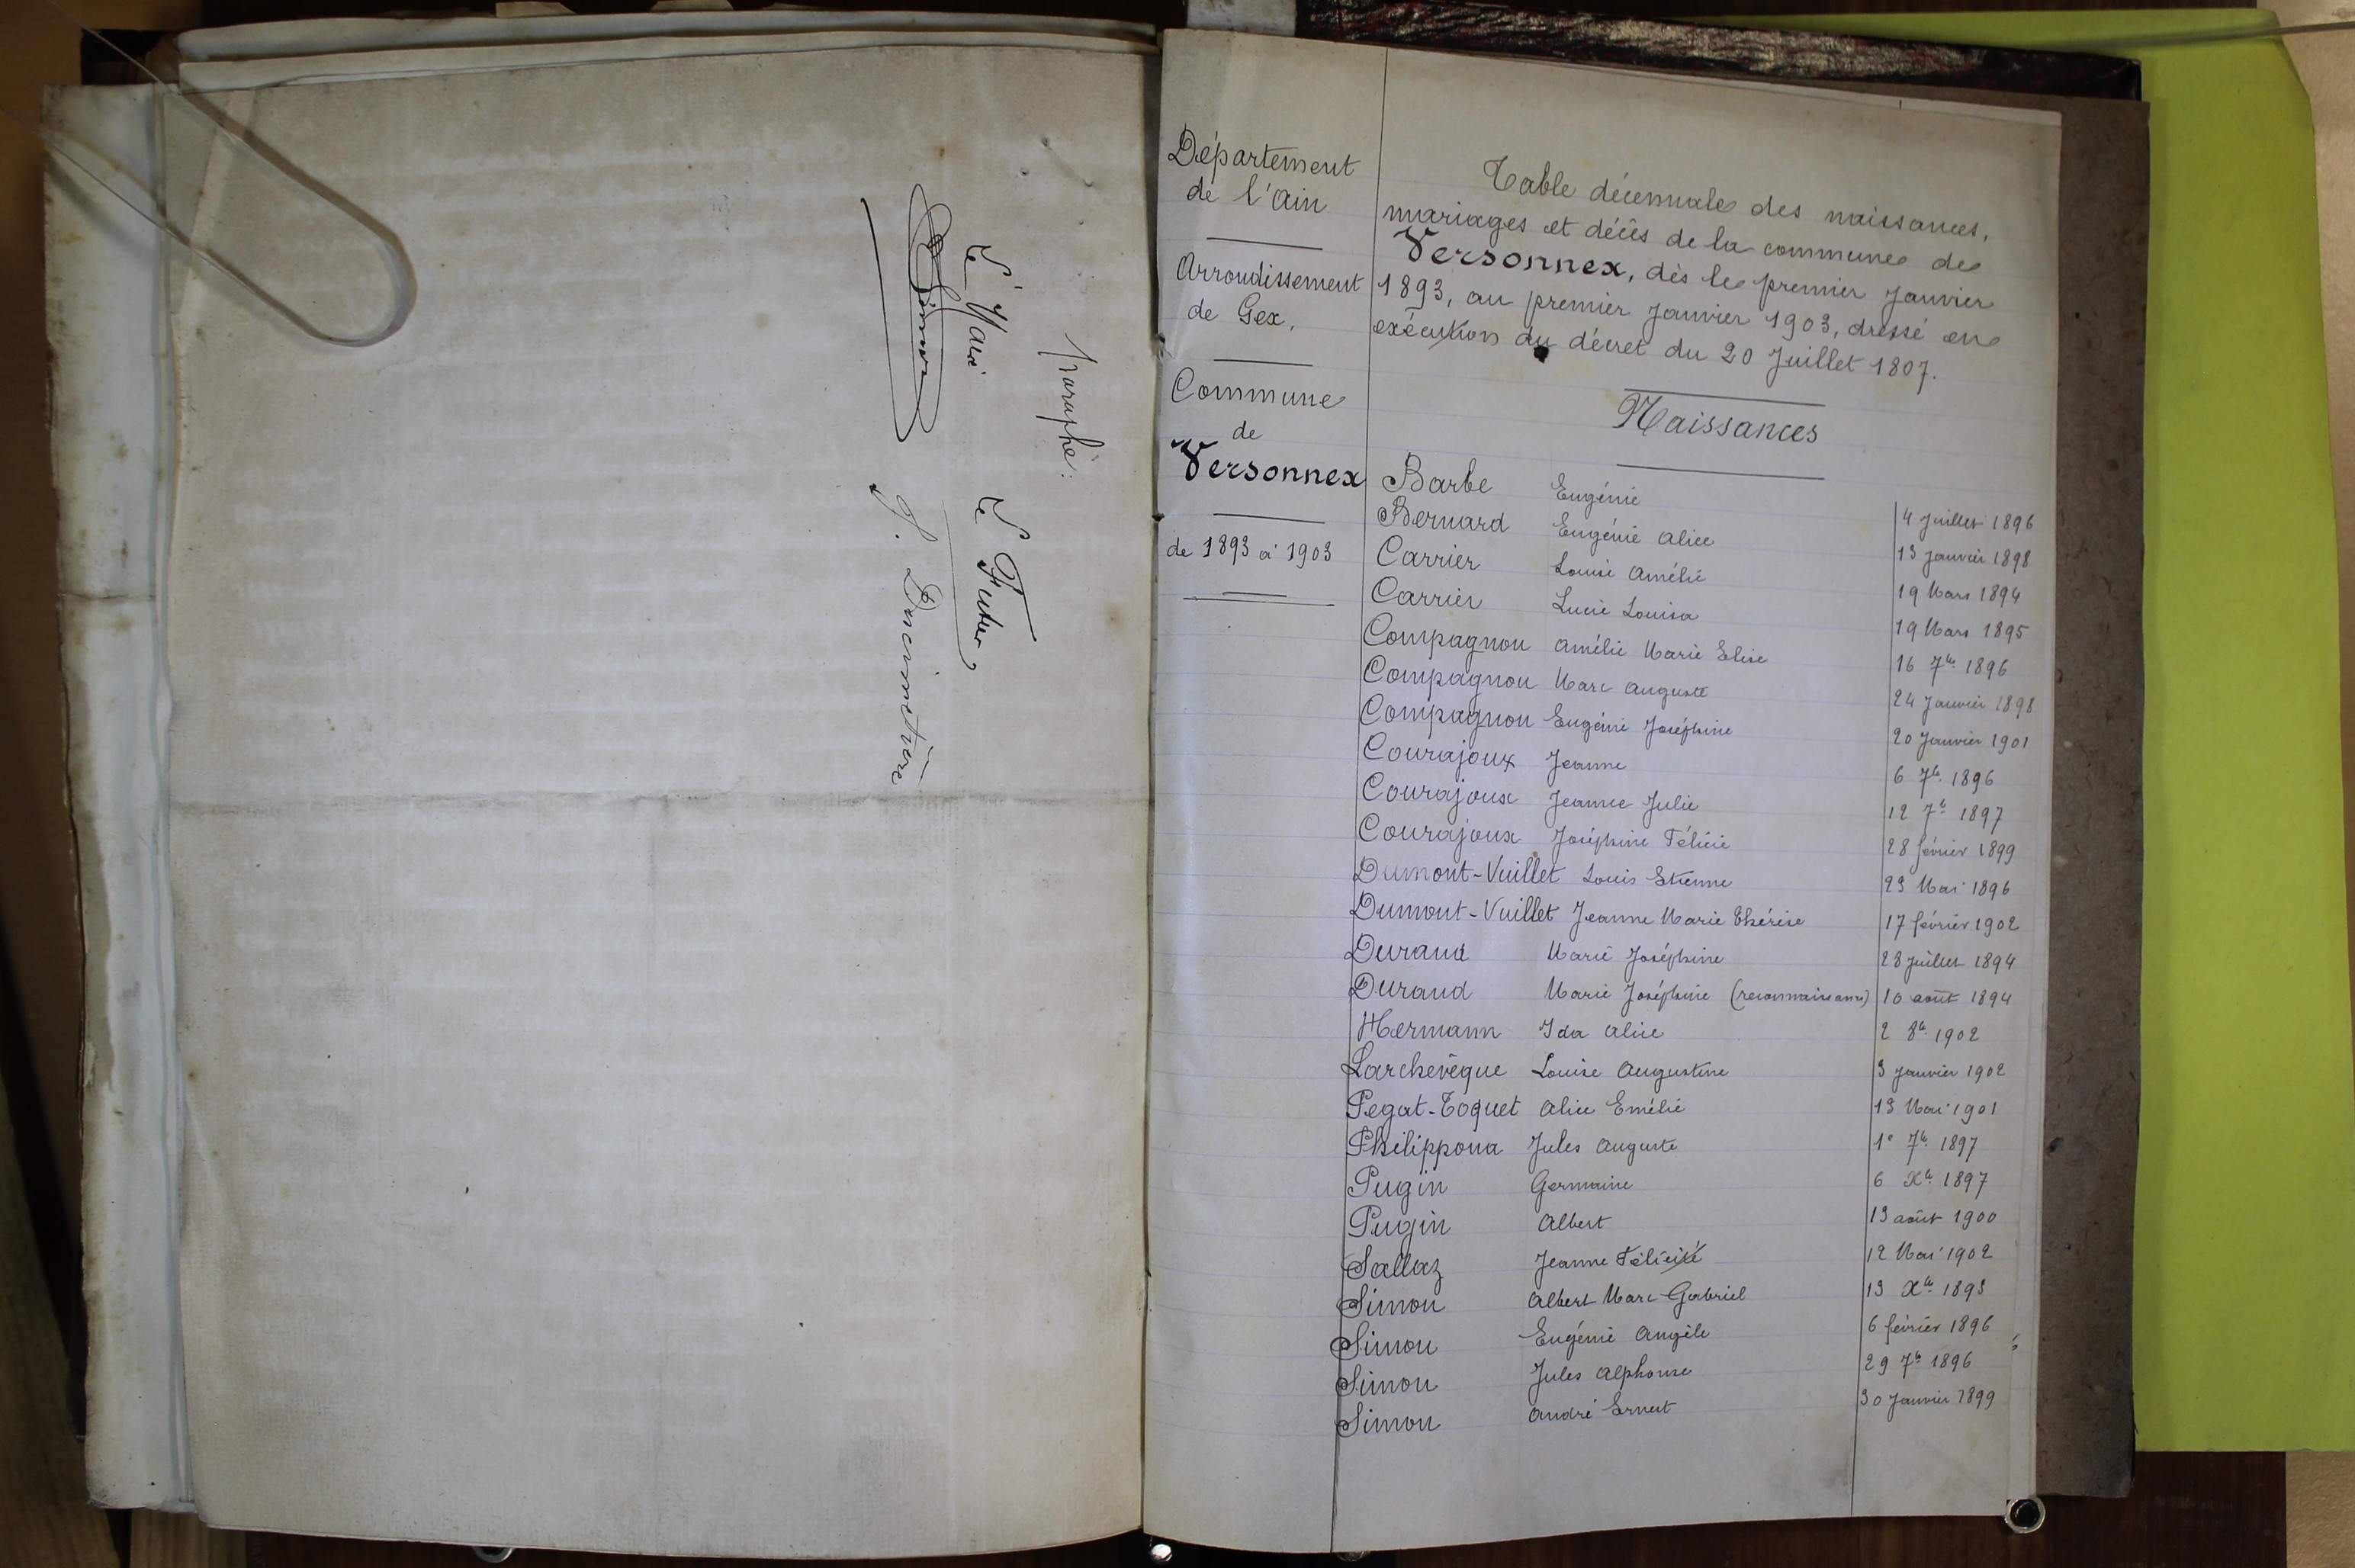 paraphé :
Le Maire
Simon
Département
de l'Ain
Arrondissement
de Gex,
Commune
de
Versonnex
de 1893 à 1903
Table décennale des naissances,
mariages et décès de la commune de
Versonnex, dès le premier Janvier
1893, au premier Janvier 1903, dressé en
exécution du décret du 20 Juillet 1807.
Naissances
Barbe Eugénie 4 Juillet 1896
Bernard Eugénie Alice 13 Janvier 1898
Carrier Louise Amélie 19 Mars 1894
Carrier Lucie Louisa 19 Mars 1895
Compagnon Amélie Marie Elise 16 7bre 1896
Compagnon Marc Auguste 24 Janvier 1898
Compagnon Eugénie Joséphine 20 Janvier 1901
Courajoux Jeanne 6 7bre 1896
Courajoux Jeanne Julie 12 7bre 1897
Courajoux Joséphine Félicie 28 février 1899
Dumont-Vuillet Louis Etienne 23 Mai 1896
Dumont-Vuillet Jeanne Marie Thérèse 17 février 1902
Durand Marie Joséphine 28 Juillet 1894
Durand Marie Joséphine (reconnaissance) 10 août 1894
Hermann Ida Alice 2 8bre 1902
Larchevêque Louise Augustine 3 Janvier 1902
Pegat-Toquet Alice Emélie 13 Mai 1901
Philippona Jules Auguste 1er 7bre 1897
Pugin Germaine 6 Xbre 1897
Pugin Albert 13 août 1900
Sallaz Jeanne Félicité 12 Mai 1902
Simon Albert Marc Gabriel 13 Xbre 1893
Simon Eugénie Angèle 6 février 1896
Simon Jules Alphonse 29 7bre 1896
Simon André Ernest 30 Janvier 1899